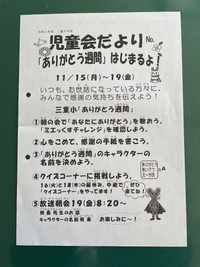 児童会だより No.
「ありがとう週間」はじまるよ!
11/15(月)～19(金)
いつも、お世話になっている方々に、
みんなで感謝の気持ちを伝えよう!
三重小「ありがとう週間」
①朝の会で「あなたにありがとう」を歌って、
「ミエっくすチャレンジ」を確認しよう。
②心をこめて、感謝の手紙を書こう。
③「ありがとう週間」のキャラクターの
名前を決めよう。
④クイズコーナーに挑戦しよう。
16(火)と18(木)の昼休み、中庭で、ぜひ
「クイズコーナー」をやってます!
⑤放送朝会19(金)8:20～
校長先生のお話
キャラクターの名前発表
お楽しみに～!